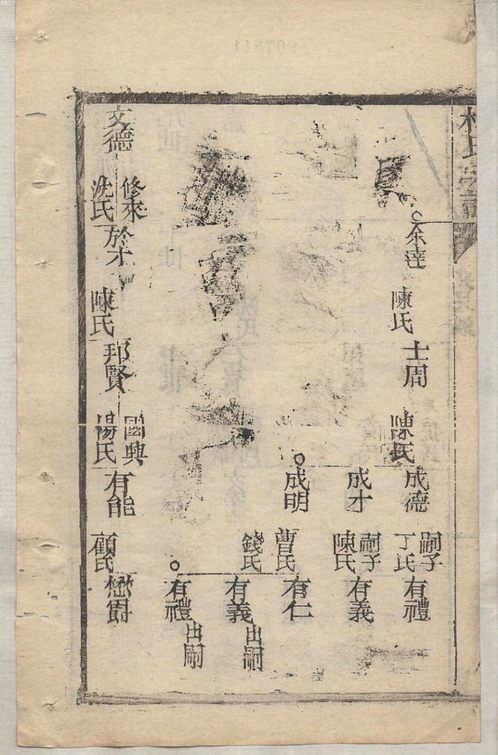 氏宗譜
余達
陳氏
士周
陳氏
成德
嗣子
丁氏
有禮
成才
嗣子
陳氏
有義
成明
曹氏
錢氏
有仁
有義
出嗣
有禮
出嗣
文德
修來
沈氏
於才
陳氏
邦賢
國興
楊氏
有能
顧氏
懋爵